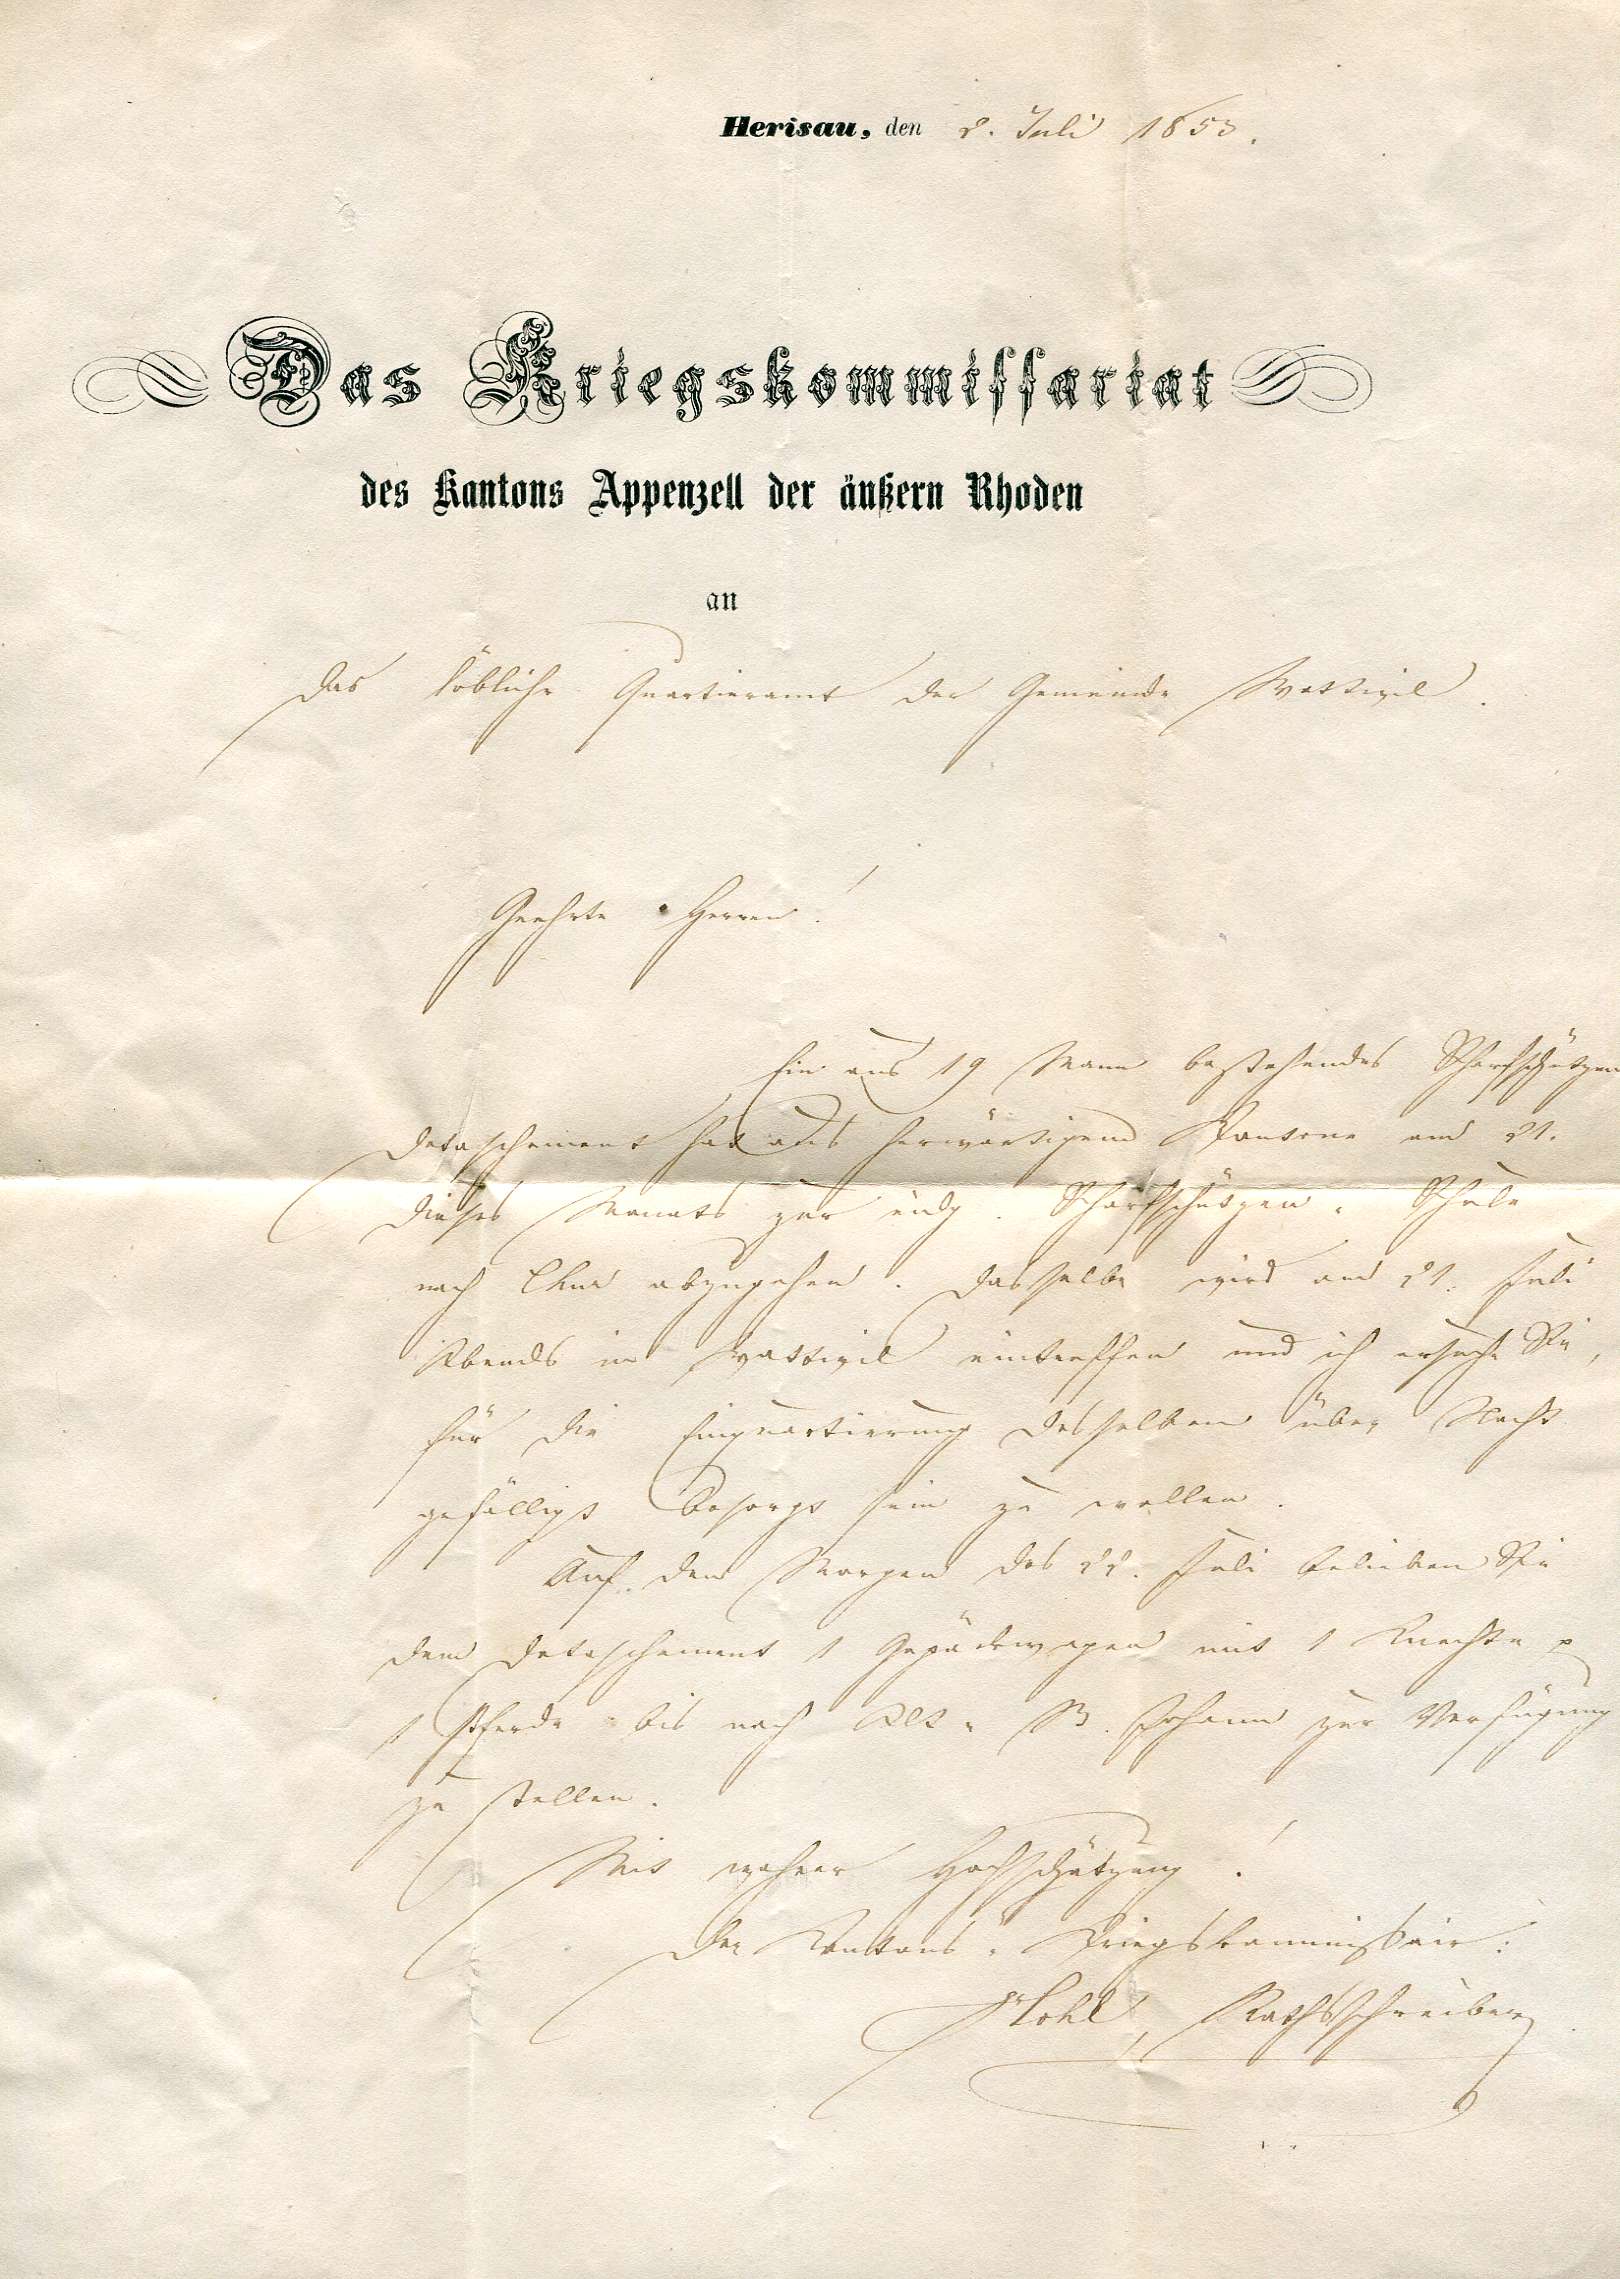 Herisau, den 2. Juli 1853.
Das Kriegskommissariat
des Kantons Appenzell der äußern Rhoden
an
das löbliche Quartieramt der Gemeinde Wattwil.
Geehrte Herren!
Ein aus 19 Mann bestehendes Scharfschützen
detaschement hat aus herwärtigem Kantone am 21.
dieses Monats zur eidg. Scharfschützen-Schule
nach Chur abzugehen. Dasselbe wird am 21. Juli
Abends in Wattwil eintreffen und ich ersuche Sie,
für die Einquartierung desselben über Nacht
gefälligst besorgt sein zu wollen.
Auf den Morgen des 22. Juli belieben Sie
dem Detaschement 1 Gepäckwagen mit 1 Knechte
1 Pferde bis nach Alt-St. Johann zur Verfügung
zu stellen.
Mit wahrer Hochschätzung!
Der Kantons-Kriegskommissair:
Hohl, Rathsschreiber